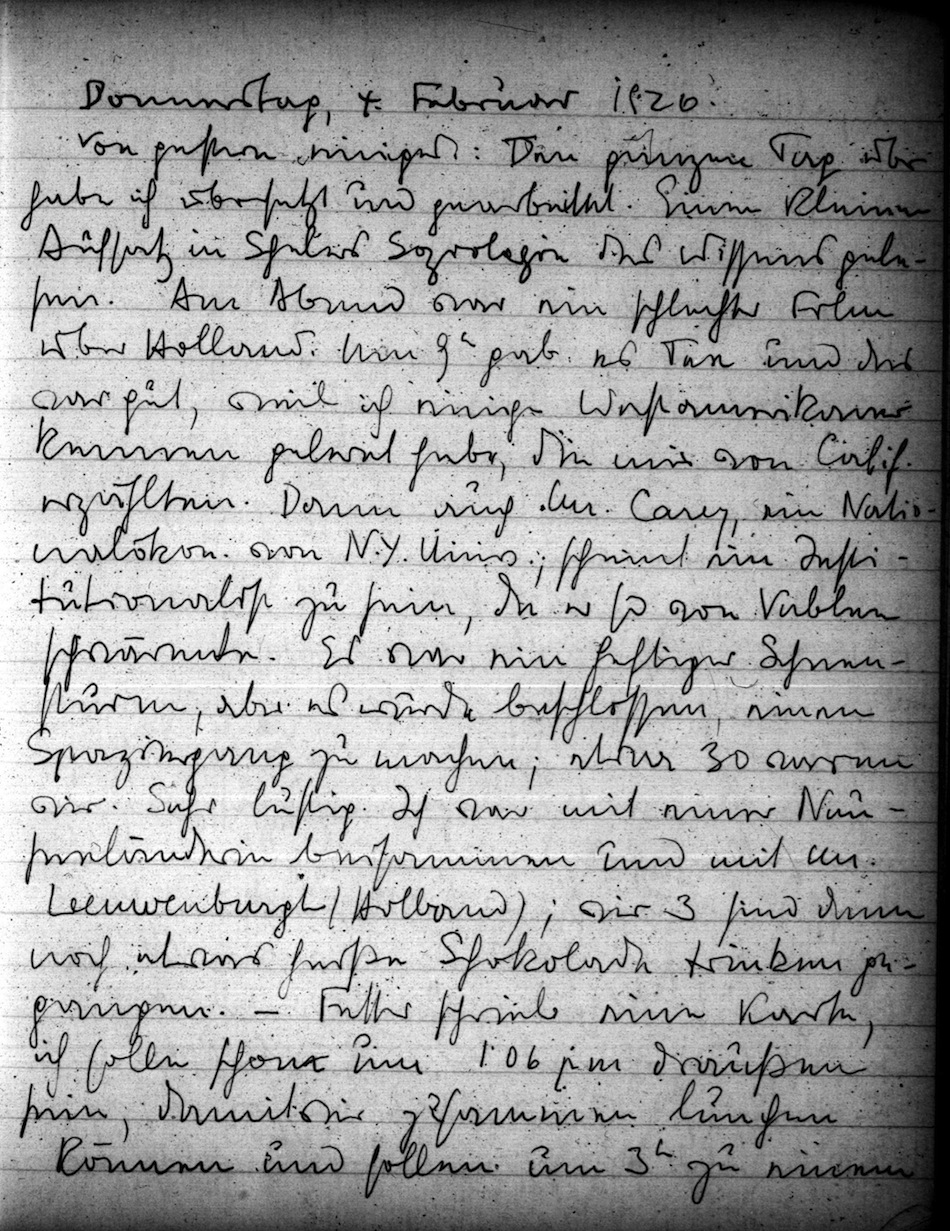 Donnerstag, 4. Februar 1926.
Von gestern einiges: Den ganzen Tag über
habe ich übersetzt und gearbeitet. Einen kleinen
Aufsatz in Schelers Soziologie des Wissens gele-
sen. Am Abend war ein schlechter Film
über Holland. Um 9h gab es Tee und das
war gut, weil ich einige Westamerikaner
kennen gelernt habe, die mir von Calif.
erzählten. Dann auch Mr. Carey, ein Natio-
nalökon. von N.Y. Univ.; scheint ein Insti-
tutionalist zu sein, da er so von Veblen
schwärmte. Es war ein heftiger Schnee-
sturm, aber es wurde beschlossen, einen
Spaziergang zu machen; etwa 30 waren
wir. Sehr lustig. Ich war mit einer Neu-
seeländerin beisammen und mit Mr.
Leeuwenburgh (Holland); wir 3 sind dann
noch etwas heiße Schokolade trinken ge-
gangen. — Fetter schrieb eine Karte,
ich solle schon um 1.06 pm draußen
sein, damit wir zusammen lunchen
können und sollen um 3h zu einem